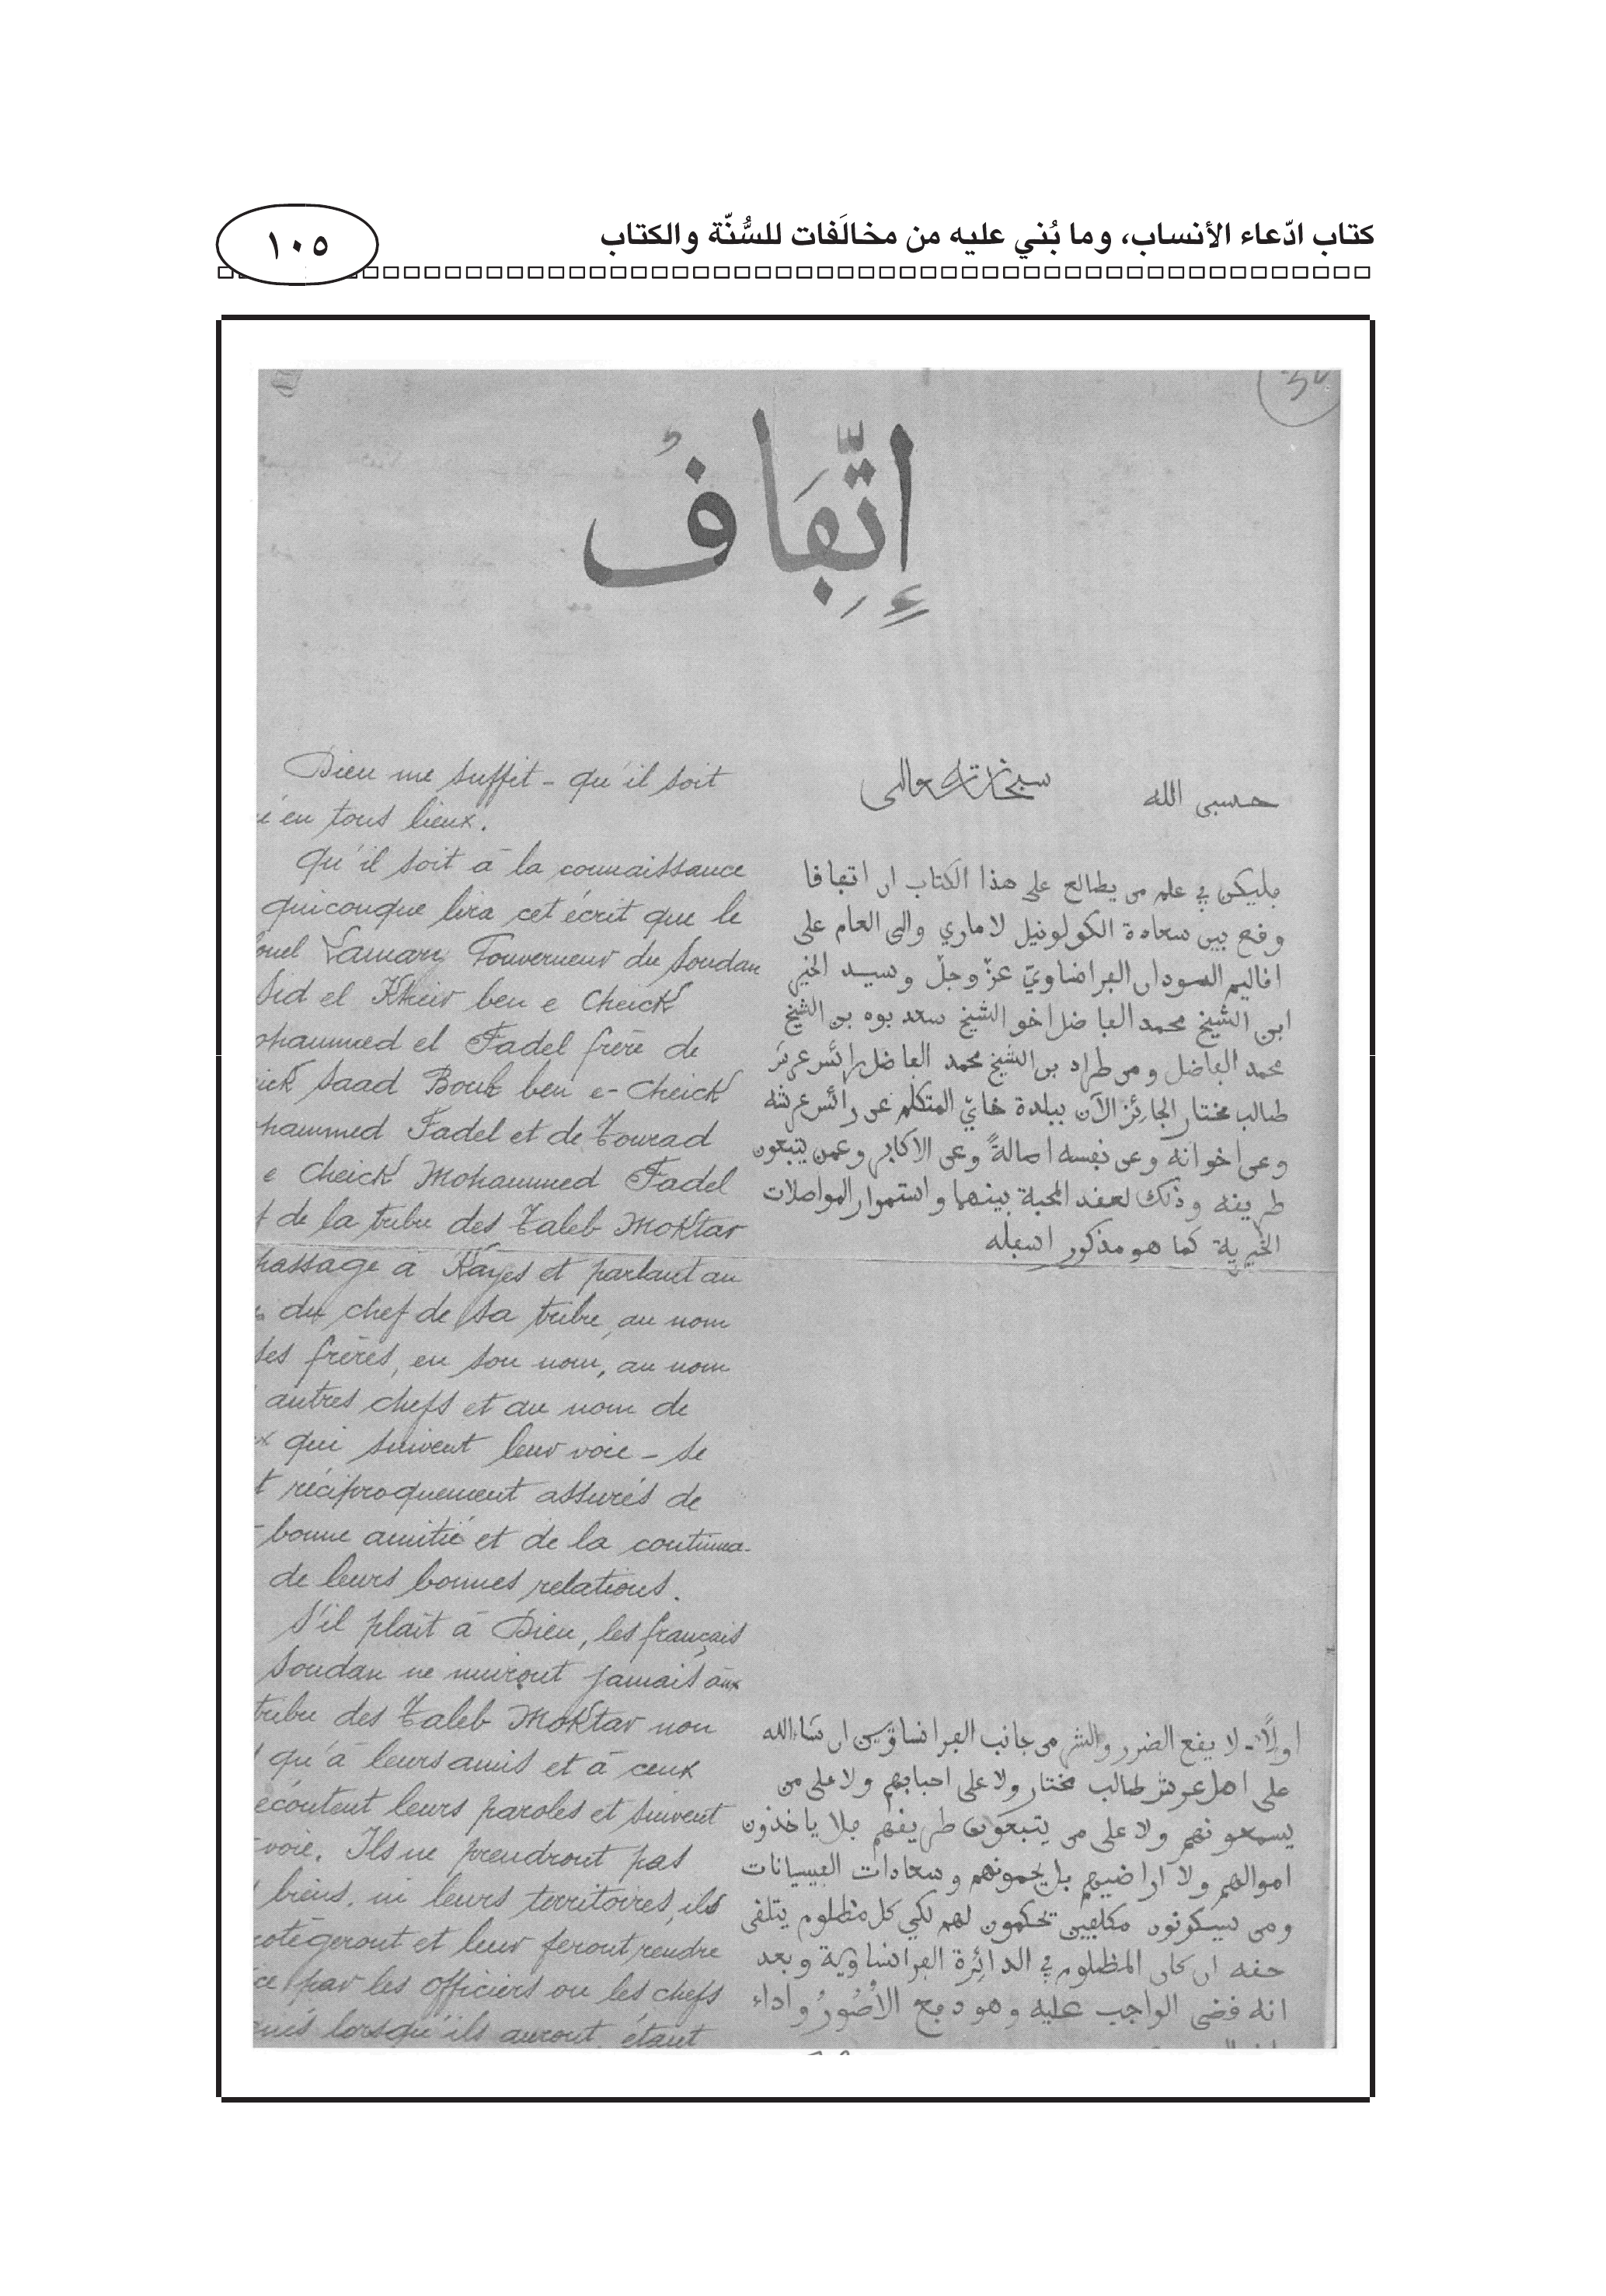 كتاب ادّعاء الأنساب، وما بُني عليه من مخالَفات للسُّنّة والكتاب
١٠٥
إِتِّفَافُ
حسبى الله
فليكن في علم من يطالع على هذا الكتاب ان اتفاقا
وقع بين سعادة الكولونيل لاماري والى العام على
اقاليم السودان الفرانصاويّ عزّ وجلّ وسيد الخير
ابن الشيخ محمد الفاضل اخو الشيخ سعد بوه بن الشيخ
محمد الفاضل ومن طراد بن الشيخ محمد الفاضل رائس عرش
طالب مختار الجائز الآن ببلدة خايّ المتكلم عن رائس عرشه
وعن اخوانه وعن نفسه اصالةً وعن الاكابر وعمن يتبعون
طريقه وذلك لعقد المحبة بينهما واستمرار المواصلات
الخيرية كما هو مذكور اسفله
اولاً - لا يقع الضرر والشر من جانب الفرانساويين ان شاء الله
على اهل عرش طالب مختار ولا على احبابهم ولا على من
يسمعونهم ولا على من يتبعون طريقهم فلا ياخذون
اموالهم ولا اراضيهم بل يحمونهم وسعادات الفيسيانات
ومن سيكونون مكلفين تحكمون لهم لكي كل مظلوم يتلقى
حقه ان كان المظلوم في الدائرة الفرانساوية وبعد
انه قضى الواجب عليه وهو دفع العشور واداء
Dieu me suffit - qu'il soit
en tous lieux.
Qu'il soit à la connaissance
quiconque lira cet écrit que le
onel Lamary Gouverneur du Soudan
Sid el Kheir ben e Cheick
ohammed el Fadel frère de
eick Saad Bouh ben e-Cheick
hammed Fadel et de Tourad
e Cheick Mohammed Fadel
t de la tribu des Taleb Moktar
passage à Kayes et parlant au
du chef de sa tribu, au nom
ses frères, en son nom, au nom
autres chefs et au nom de
x qui suivent leur voie - se
t réciproquement assurés de
bonne amitié et de la continua-
de leurs bonnes relations.
S'il plaît à Dieu, les français
Soudan ne nuiront jamais aux
tribu des Taleb Moktar non
qu'à leurs amis et à ceux
écoutent leurs paroles et suivent
voie. Ils ne prendront pas
biens, ni leurs territoires, ils
rotégeront et leur feront rendre
ce par les officiers ou les chefs
nés lorsqu'ils auront, étant